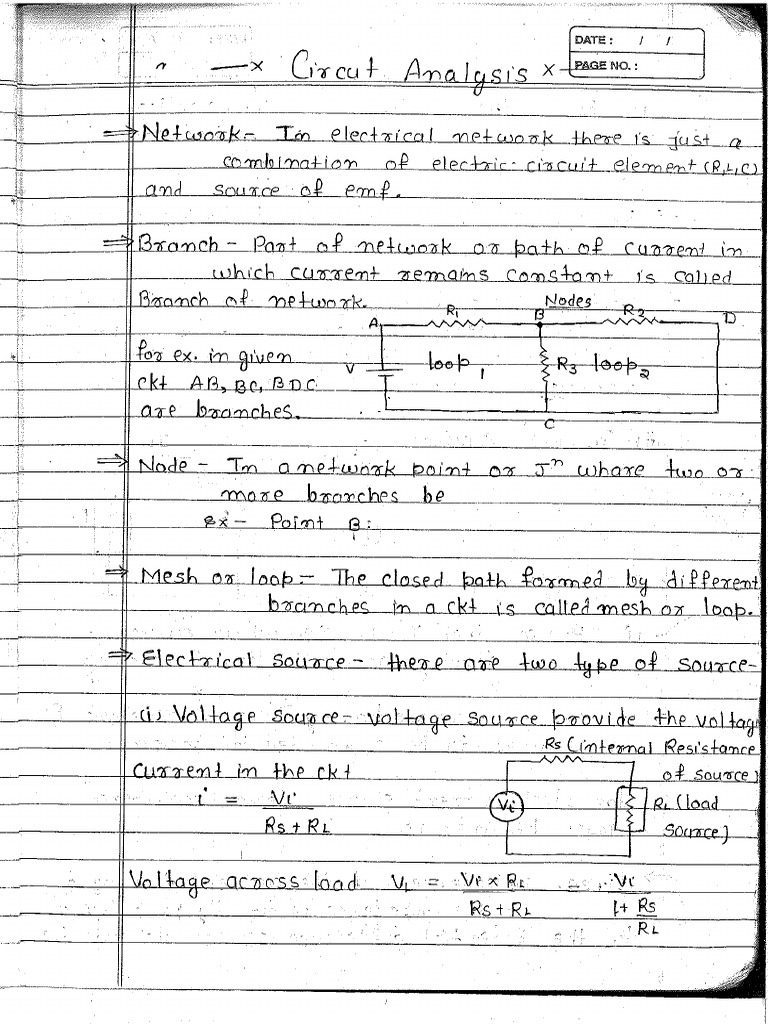 DATE : / /
PAGE NO. :
" —x Circut Analysis x—
⇒ Network - In electrical network there is just a
combination of electric circuit element (R,L,C)
and source of emf.
⇒ Branch - Part of network or path of current in
which current remains constant is called
Branch of network.
Nodes
A R1 B R2 D
for ex. in given
V loop1 R3 loop2
ckt AB, BC, BDC
are branches.
C
⇒ Node - In a network point or Jⁿ whare two or
more branches be
ex - Point B:
⇒ Mesh or loop - The closed path formed by different
branches in a ckt is called mesh or loop.
⇒ Electrical source - there are two type of source -
(i) Voltage source - voltage source provide the voltag
Rs (internal Resistance
of source)
current in the ckt
i = Vi / (Rs + RL)
Vi
RL (load
source)
Voltage across load VL = Vi × RL / (Rs + RL) = Vi / (1 + Rs/RL)